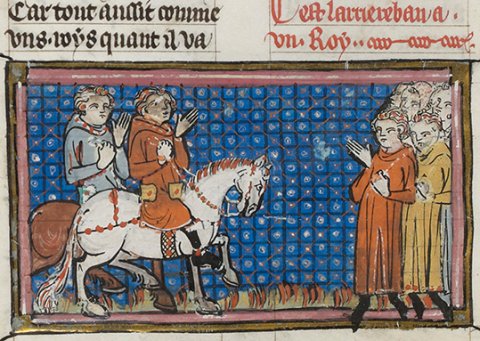 Car tout aussit comme
vns. roys quant il va
Cest larriereban a.
vn. Roy..